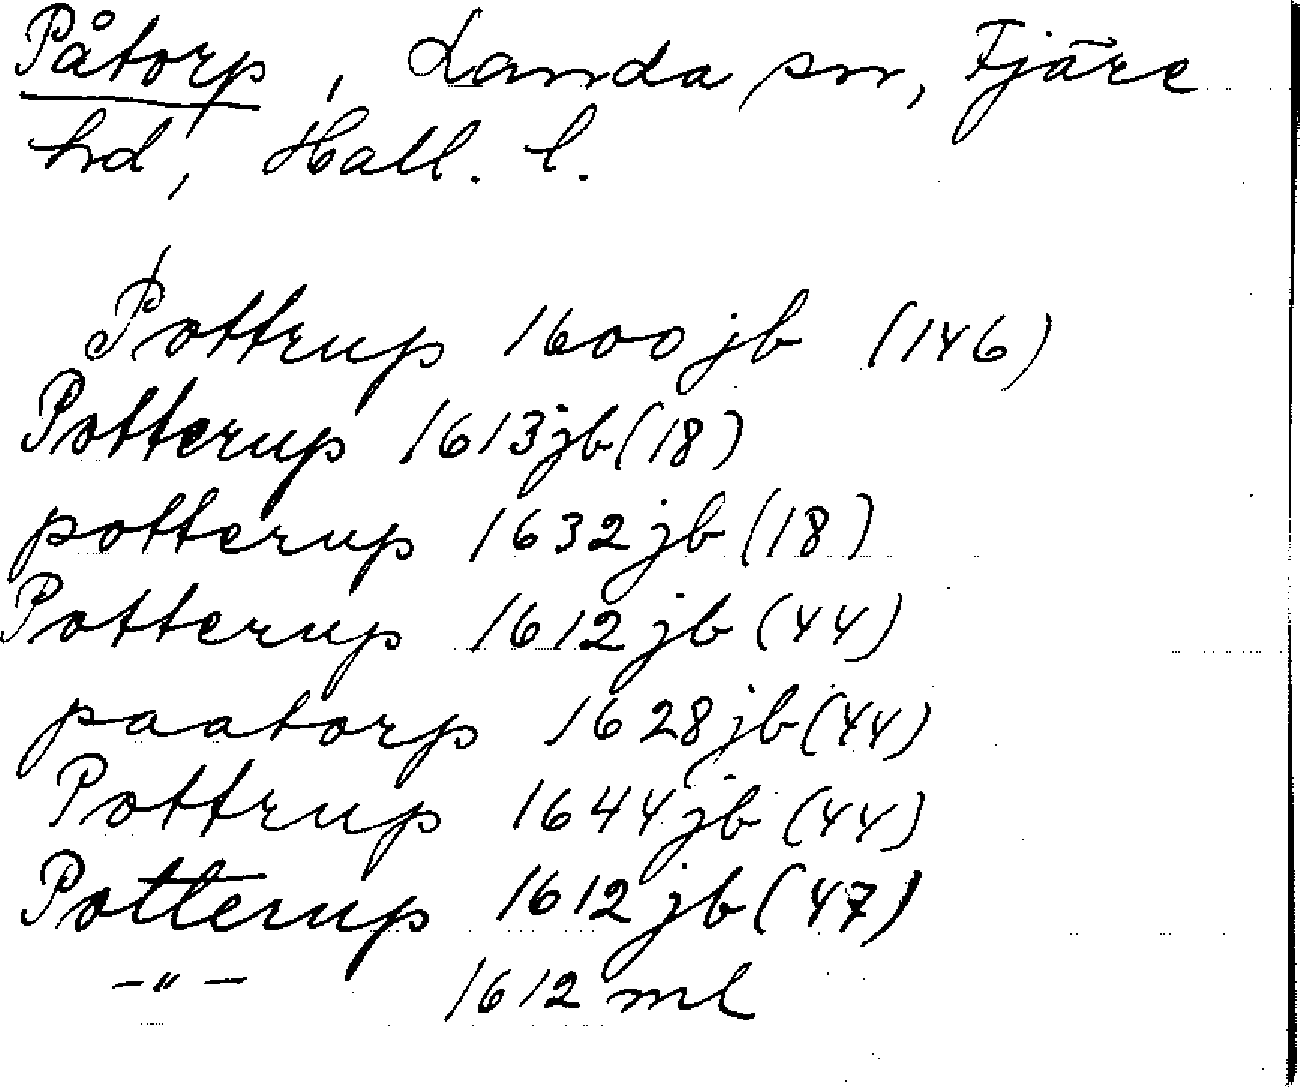 Påtorp, Landa sn, Fjäre
hd, Hall. l.
Pottrup 1600 jb (146)
Potterup 1613 jb (18)
potterup 1632 jb (18)
Potterup 1612 jb (44)
paatorp 1628 jb (44)
Pottrup 1644 jb (44)
Potterup 1612 jb (47)
-"- 1612 ml